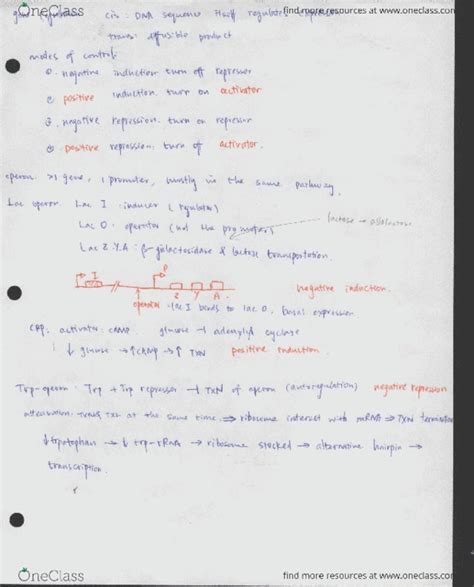 OneClass
find more resources at www.oneclass.com
gene regulation cis: DNA sequence itself regulates expression
trans: diffusible product
modes of control:
①. negative induction turn off repressor
② positive induction. turn on activator
③. negative repression. turn on repressor
④ positive repression. turn off activator.
operon. >1 gene, 1 promoter, mostly in the same pathway.
Lac operon Lac I : inducer (regulator)
Lac O : operator (not the promoter) lactose → allolactose
Lac Z.Y.A : β-galactosidase & lactose transportation.
I P
Z Y A negative induction.
operator · lac I binds to lac O, basal expression
CRP. activator: cAMP. glucose ⊣ adenylyl cyclase
↓ glucose → ↑cAMP → ↑ TXN positive induction
Trp-operon : Trp + Trp repressor ⊣ TXN of operon (autoregulation) negative repression
attenuation. TXN at the same time. ⇒ ribosome interact with mRNA ⇒ TXN termination
↓ tryptophan → ↓ trp-tRNA → ribosome stocked → alternative hairpin →
transcription.
OneClass
find more resources at www.oneclass.com